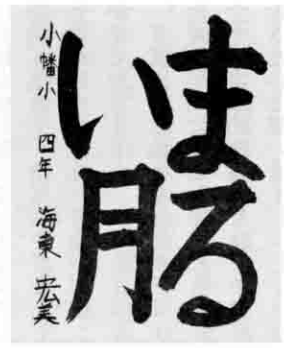 まる
い月
小幡小 四年 海東 宏美